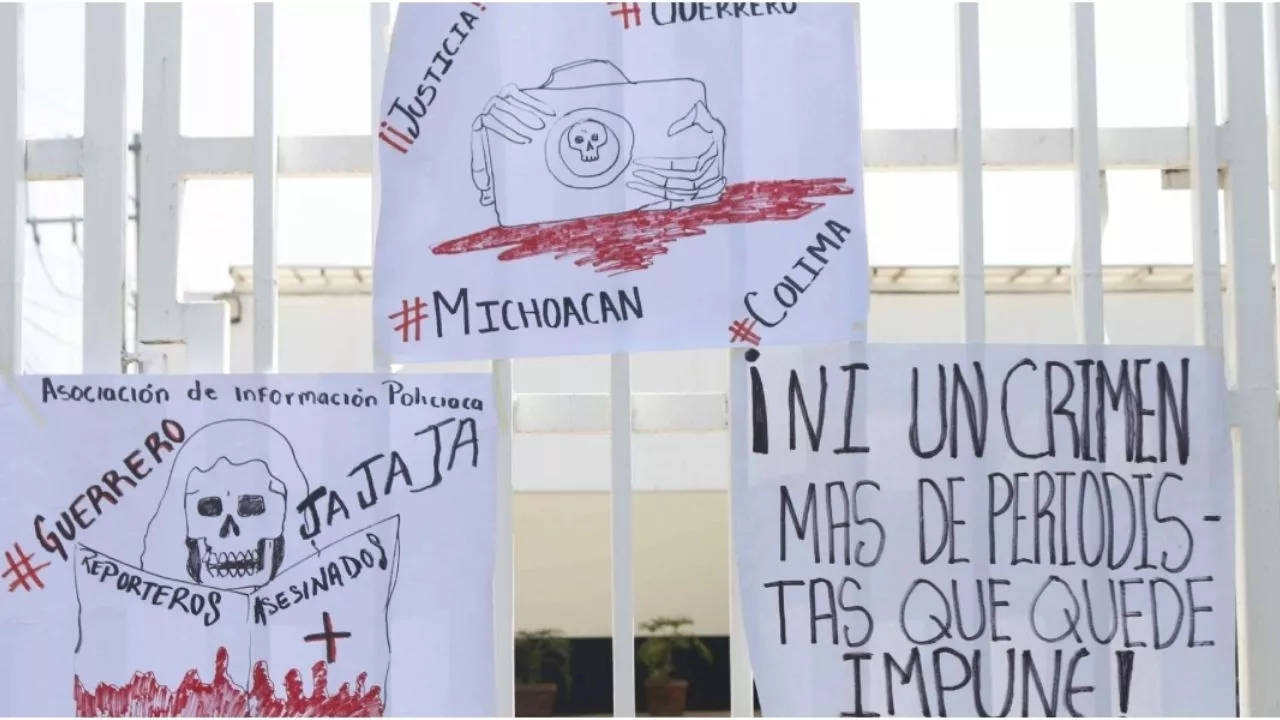 ¡¡JUSTICIA!
#GUERRERO
#MICHOACAN
#COLIMA
Asociación de Información Policiaca
#GUERRERO
JA JA JA JA
REPORTEROS
ASESINADOS
¡NI UN CRIMEN
MAS DE PERIODIS-
TAS QUE QUEDE
IMPUNE!